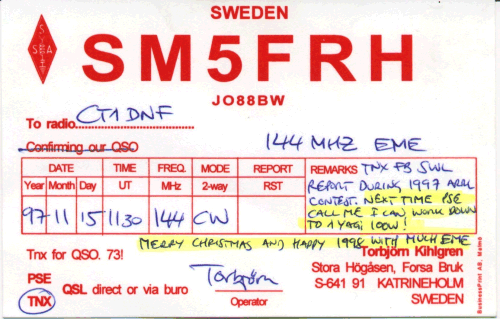 SWEDEN
SSA
SM5FRH
JO88BW
To radio CT1DNF
Confirming our QSO 144 MHZ EME
DATE TIME FREQ. MODE REPORT REMARKS TNX FB SWL
Year Month Day UT MHz 2-way RST REPORT DURING 1997 ARRL
CONTEST. NEXT TIME PSE
97 11 15 1130 144 CW CALL ME I CAN WORK DOWN
TO 1 YAGI 100W!
MERRY CHRISTMAS AND HAPPY 1998 WITH MUCH EME
Tnx for QSO. 73! Torbjörn Kihlgren
PSE Torbjörn Stora Högåsen, Forsa Bruk
QSL direct or via buro S-641 91 KATRINEHOLM
TNX Operator SWEDEN
BusinessPrint AB, Malmö